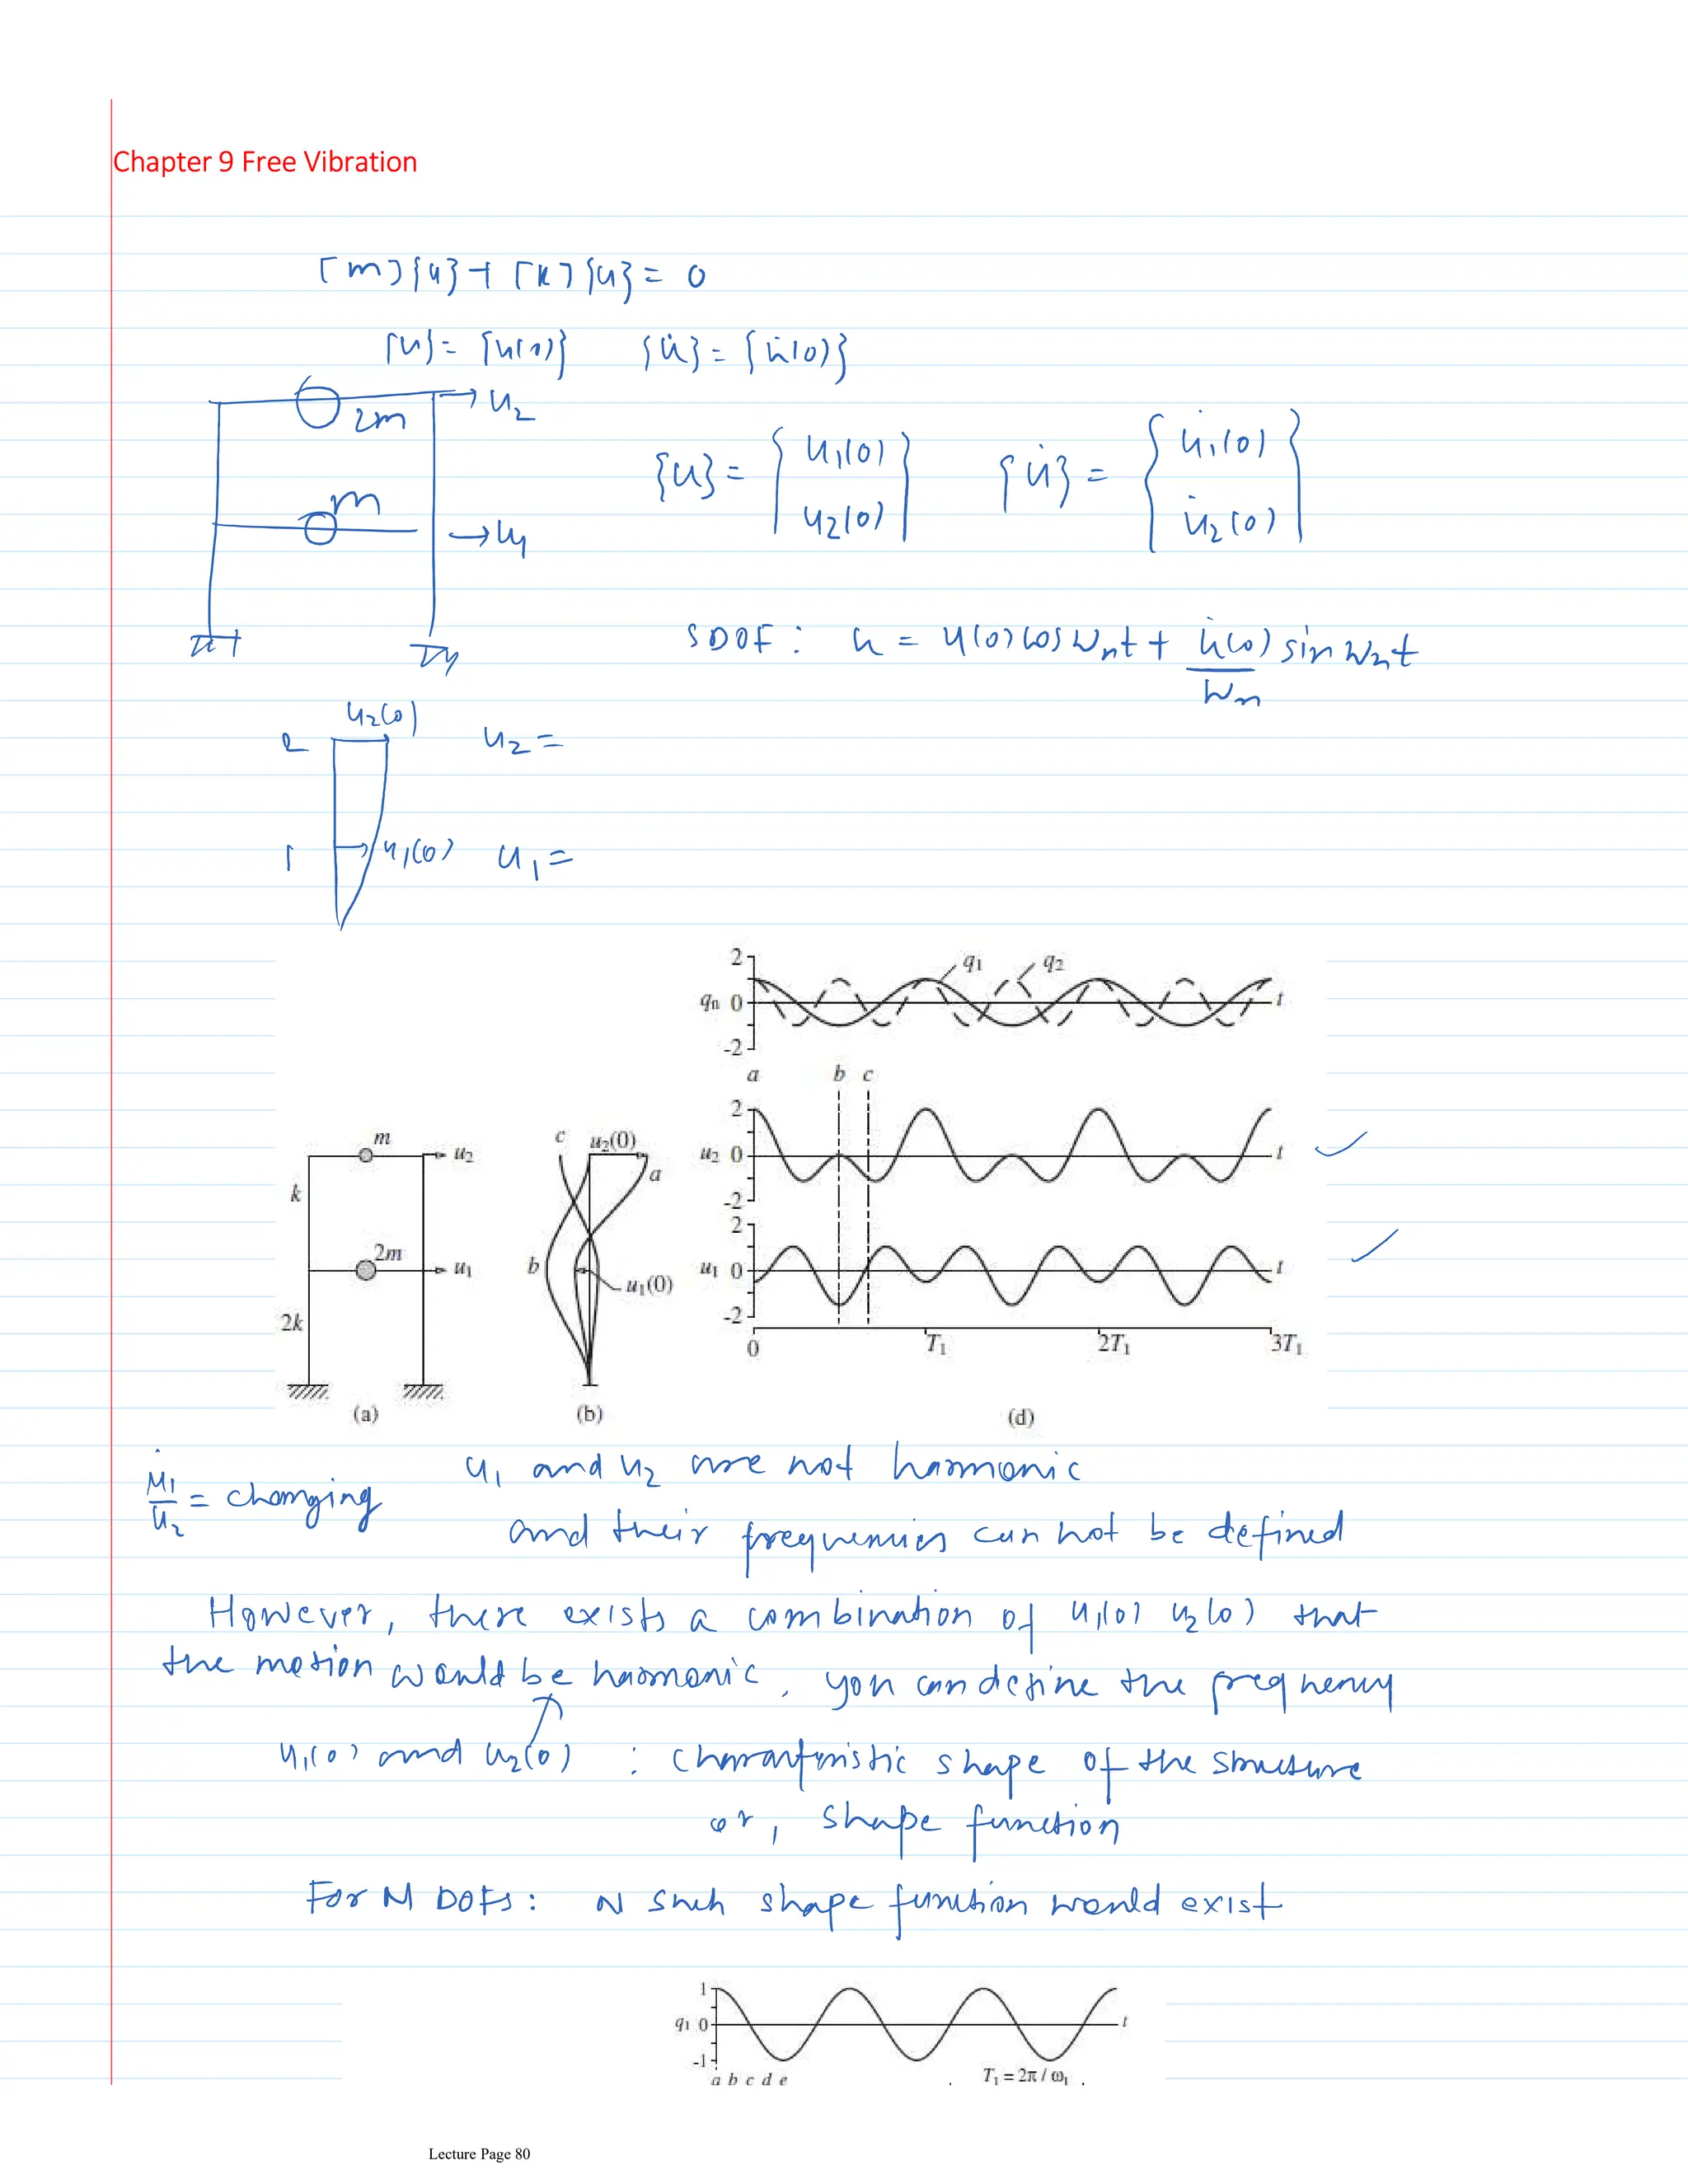 Chapter 9 Free Vibration
[m]{u}+[k]{u}= 0
{u}= {u(0)} {u̇}= {u̇(0)}
2m → u2
m → u1
{u}= { u1(0) u2(0) } {u̇} = { u̇1(0) u̇2(0) }
SDOF: u = u(0)cosωnt + u̇(0)/ωn sinωnt
2 u2(0) u2=
1 u1(0) u1=
2
qn 0
-2
q1 q2 t
a b c
2
u2 0 t
-2
2
u1 0 t
-2
0 T1 2T1 3T1
(d)
m u2
k
2m u1
2k
(a)
c u2(0)
a
b
u1(0)
(b)
u1/u2 = changing
u1 and u2 are not harmonic
and their frequencies can not be defined
However, there exists a combination of u1(0) u2(0) that
the motion would be harmonic, you can define the frequency
u1(0) and u2(0) : characteristic shape of the structure
or, shape function
For N DOFs: N such shape function would exist
1
q1 0 t
-1
a b c d e T1 = 2π / ω1
Lecture Page 80